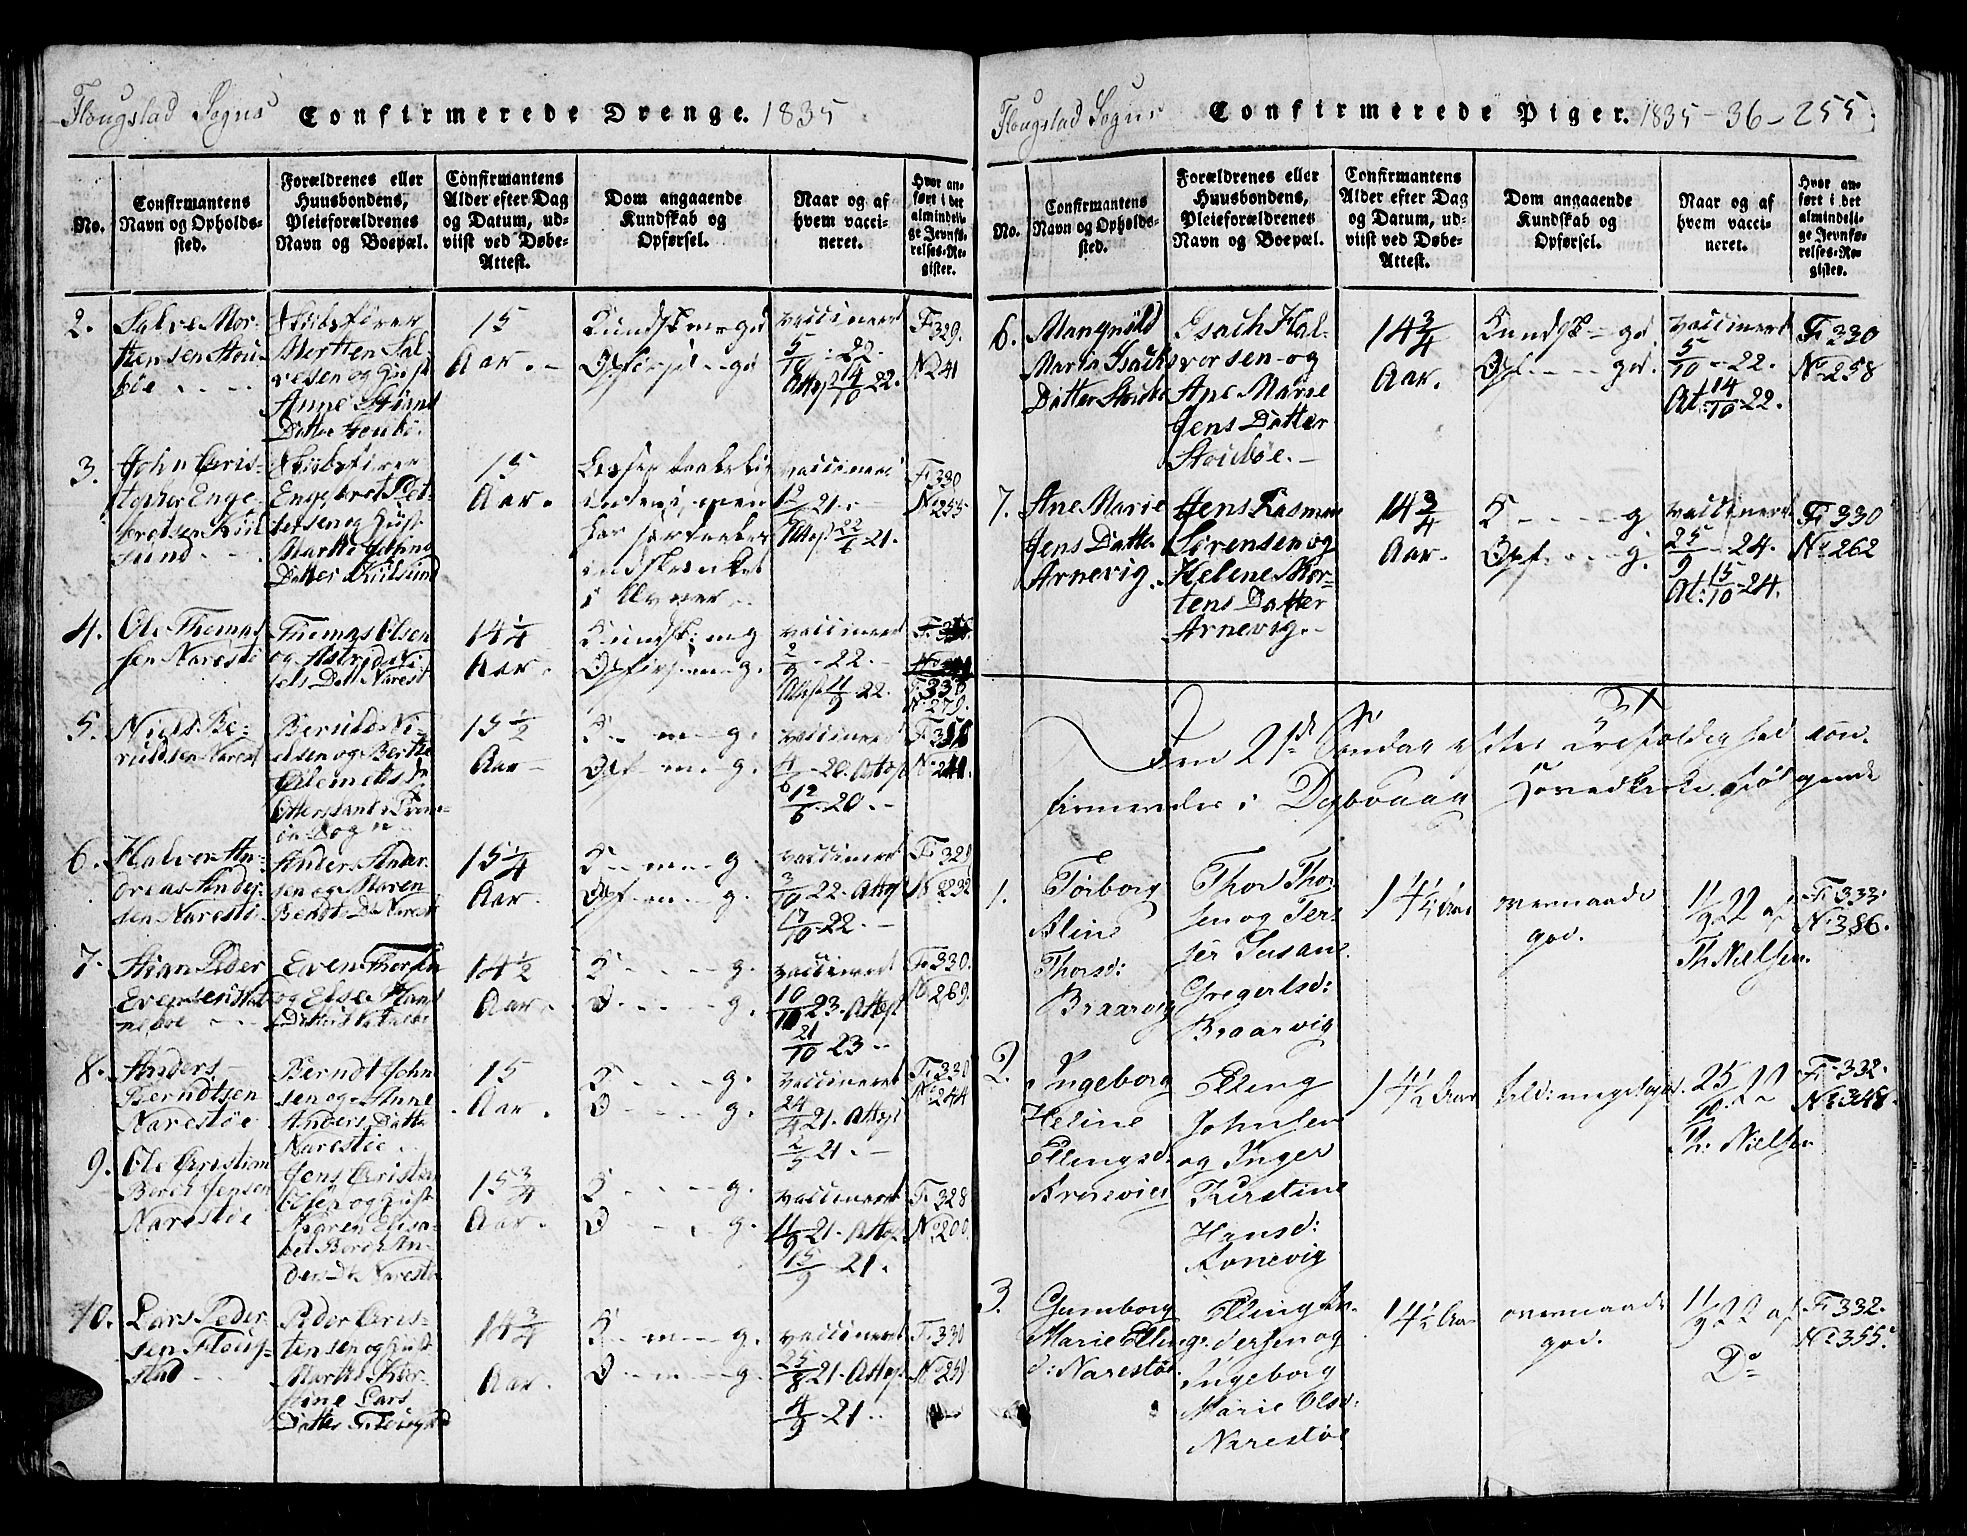 Flougstad Sogns Confirmerede Drenge. 1835
No.
Confirmantens
Navn og Opholds-
sted.
Forældrenes eller
Huusbondens,
Pleieforældrenes
Navn og Boepæl.
Confirmantens
Alder efter Dag
og Datum, ud-
viist ved Døbe-
Attest.
Dom angaaende
Kundskab og
Opførsel.
Naar og af
hvem vacci-
neret.
Hvor an-
ført i det
almindeli-
ge Jevnfø-
relses-Re-
gister.
2.
Salve Mor-
tensen Stou-
böe
Mortten Sal-
vesen og Hust
Anne
Datter
15
Aar.
vaccineert
5/10 - 22.
Attest 14/10 22.
F: 329.
No 241
3.
John Cris-
topher Enge-
bretsen Kiil-
sund
Engebret Pet-
tersen og Hust
Marthe
Datter Kiilsund
15
Aar.
vaccineert
12/6 21.
Attest 22/6 21.
F: 330
No 255
4.
Ole Thomas
sen Narestö
Thomas Olsen
og Astrid Ni-
els Datt Narest
14 1/4
Aar.
Kundsk: m g
vaccineert
2/9 - 22.
Attest 4/9 22.
F: 330
No 279.
5.
Niels Be-
ruldsen Narest
Beruld Ni-
elsen og Berthe
15 1/2
Aar
K - m - g.
Opf - m - g.
vaccineert
4/6 - 20. Attest
12/6 - 20.
6.
Halvor An-
dreas Ander-
sen Narestö
Anders Ander-
sen og Maren
Bendt D. Narestö
15 1/4
Aar.
K - m - g.
Opf - m - g.
vaccineert
3/10 22. Attest
17/10 22.
F: 329
No 232
7.
Stian Peder
Evensen
Even Thorsen
og Else Hans
Datter
14 1/2
Aar.
K - - - g.
O - - - g.
vaccineert
10/10 23. Attest
21/10 23.
F: 330.
No 269.
8.
Anders
Berndtsen
Narestöe
Berndt John
sen og Anne
Anders Datte
Narestöe
15
Aar.
K - - - g.
O - - - g.
vaccineert
24/4 21. Attest
2/5 21.
F: 330
No 244
9.
Ole Cristian
Berch Jensen
Narestöe
Jens Cristian
Olsen og Hust
Maren Elisa-
bet Berch An-
ders D. Narestö
15 3/4
Aar.
K - - - g.
O - - - g.
vaccineert
11/9 21. Attest
15/9 21.
F: 328
No 200.
10.
Lars Peder
sen Floug-
stad
Peder Cris-
tensen og Hust
Marthe
Lars
Datter Flougstad
14 3/4
Aar.
K - m - g.
O - m - g.
vaccineert
25/8 21. Attest
4/9 21.
F: 330
No 259
Flougstad Sogns Confirmerede Piger. 1835-36 - 255
No.
Confirmantens
Navn og Opholds-
sted.
Forældrenes eller
Huusbondens,
Pleieforældrenes
Navn og Boepæl.
Confirmantens
Alder efter Dag
og Datum, ud-
viist ved Døbe-
Attest.
Dom angaaende
Kundskab og
Opførsel.
Naar og af
hvem vacci-
neret.
Hvor an-
ført i det
almindeli-
ge Jevnfø-
relses-Re-
gister.
6.
Mangnild
Maria Isachs
Datter Stouböe
Isach Hal-
vorsen og
Ane Marie
Jens Datter
Stouböe.
14 3/4
Aar.
Kundsk - gd.
Opf. - gd.
vaccineert
5/10 - 22.
At: 14/10 22.
F: 330
No 258
7.
Ane Marie
Jens Datte
Arnevig.
Jens Rasmus
Sörensen og
Helene Mor-
tens Datter
Arnevig.
14 3/4
Aar.
K - - - g.
Opf. - - g.
vaccineert
25/9 - 24.
At: 15/10 24.
F: 330
No 262
Den 21de Söndag efter Trefoldighed con-
firmeredes i Dybvaag Hovedkirke følgende
1.
Torborg
Aline
Thorsd:
Braarvig
Thor Thor
sen og Ter-
ser Susane
Gregertsd:
Braarvig
14 1/2 Aar
overmaade
god.
11/9 22 af
Th Nielsen.
F: 333.
No 386.
2.
Ingeborg
Heline
Ellingsd:
Arnevig
Elling
Johnsen
og Inger
Kirstine
Hansd:
Arnevig
14 1/2 Aar
25/10 22
Th: Nielsen
F: 332.
No 348.
3.
Gunnborg
Marie Ellings-
d: Narestöe
Elling An-
dersen og
Ingeborg
Marie Olsd:
Narestöe
14 1/2 Aar
overmaade
god.
11/9 22 af
Do
F: 332.
No 355.